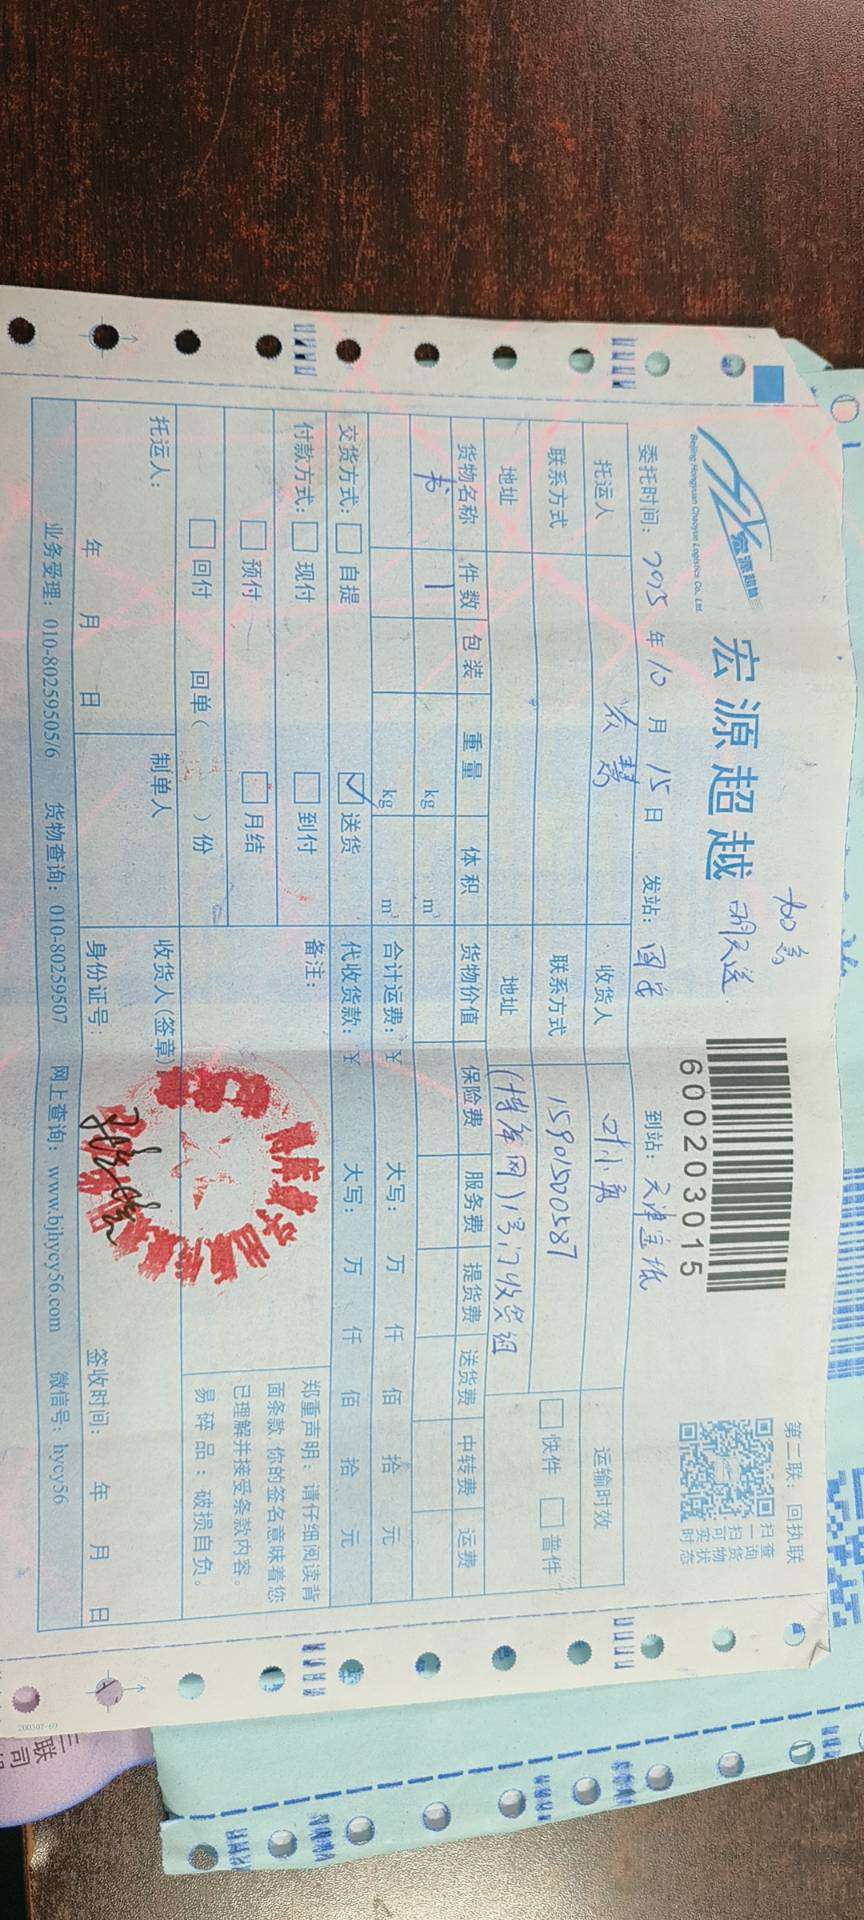 宏源超越
Beijing Hongyuan Chaoyue Logistics Co., Ltd.
宏源超越
加急
明天送
600203015
第二联：回执联
扫一扫可实时
查询货物状态
委托时间：2025年10月15日 发站：固安 到站：天津宝坻
托运人 收货人 叶小勇 运输时效
联系方式 联系方式 15901500587 快件 普件
地址 地址 (博库网)1号门收货组
货物名称 件数 包装 重量 体积 货物价值 保险费 服务费 提货费 送货费 中转费 运费
书 1 kg m³
kg m³ 合计运费：¥ 大写： 万 仟 佰 拾 元
交货方式： 自提 送货 代收货款：¥ 大写： 万 仟 佰 拾 元
付款方式： 现付 到付 备注：
预付 月结
回付 回单( )份
郑重声明：请仔细阅读背
面条款 你的签名意味着您
已理解并接受条款内容。
易碎品：破损自负。
托运人： 制单人 收货人(签章)
年 月 日 身份证号： 签收时间： 年 月 日
业务受理：010-80259505/6 货物查询：010-80259507 网上查询：www.bjhycy56.com 微信号：hycy56
200307-69
三联